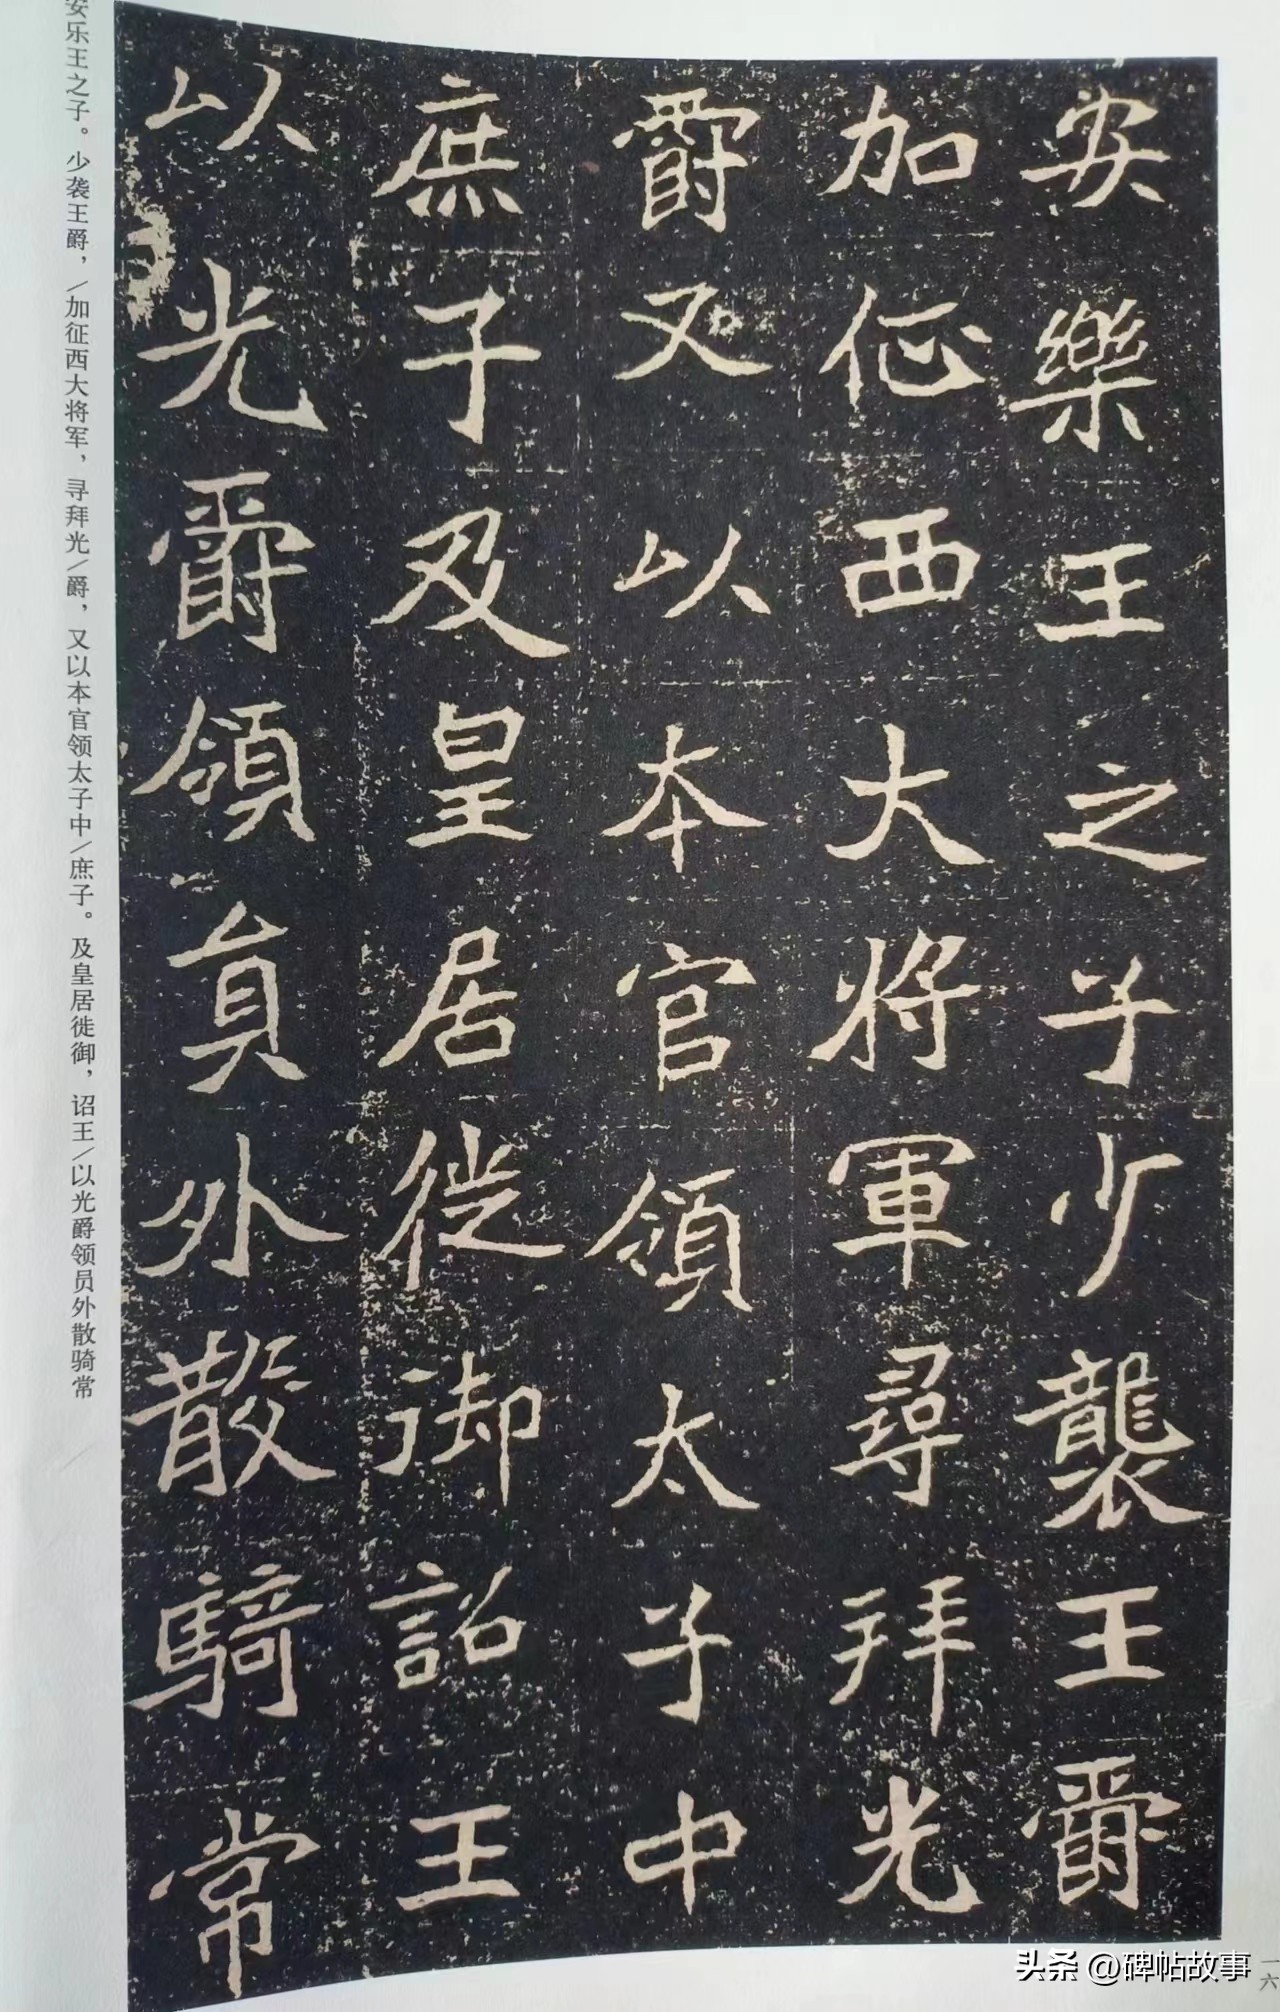 安樂王之子少襲王爵
加征西大將軍尋拜光
爵又以本官領太子中
庶子及皇居徙御詔王
以光爵領員外散騎常
安乐王之子。少袭王爵，/加征西大将军，寻拜光/爵，又以本官领太子中/庶子。及皇居徙御，诏王/以光爵领员外散骑常
一六
头条 @碑帖故事